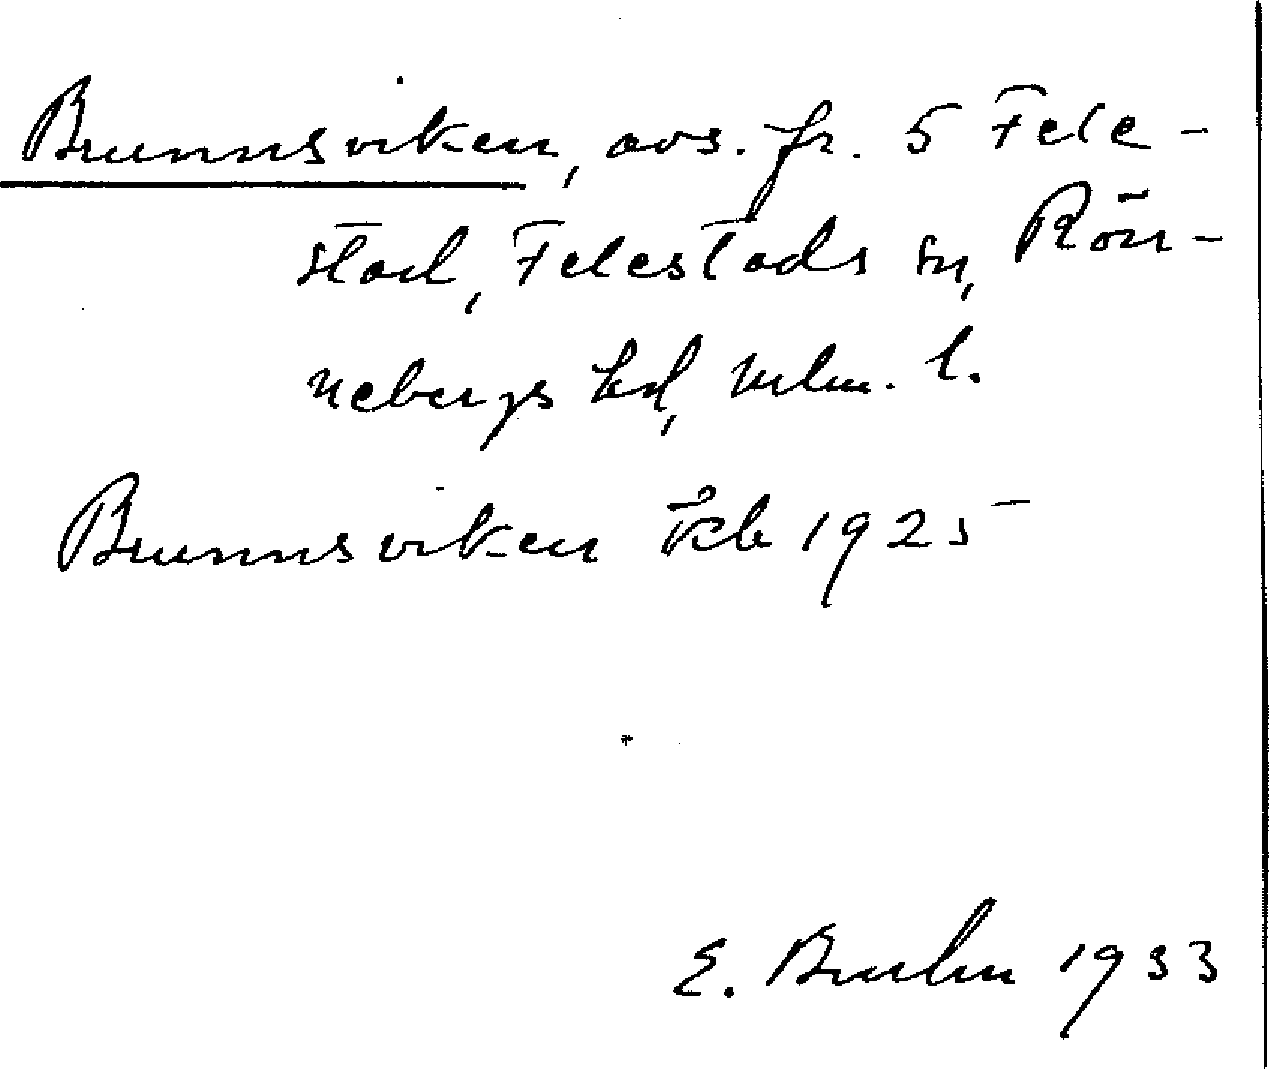 Brunnsviken, avs. fr. 5 Fele-
stad, Felestads sn, Rön-
nebergs hd, Mlm. l.
Brunnsviken kb 1925
E. Bruhn 1933